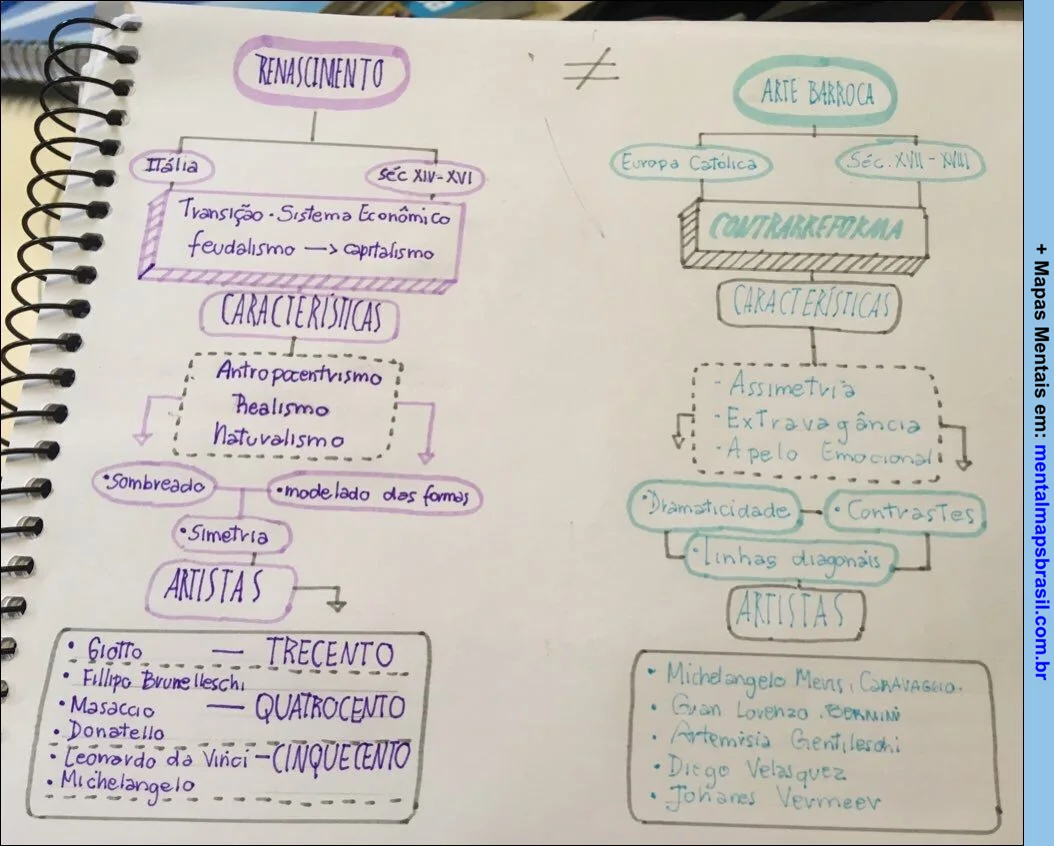 RENASCIMENTO
Itália
Séc XIV-XVI
Transição · Sistema Econômico
feudalismo → capitalismo
CARACTERÍSTICAS
Antropocentrismo
Realismo
Naturalismo
•Sombreado
•modelado das formas
•Simetria
ARTISTAS
• Giotto — TRECENTO
• Fillipo Brunelleschi
• Masaccio — QUATROCENTO
• Donatello
• Leonardo da Vinci — CINQUECENTO
• Michelangelo
≠
ARTE BARROCA
Europa Católica
Séc. XVII - XVIII
CONTRARREFORMA
CARACTERÍSTICAS
- Assimetria
- Extravagância
- Apelo Emocional
•Dramaticidade
• Contrastes
•Linhas diagonais
ARTISTAS
• Michelangelo Meris, CARAVAGGIO.
• Gian Lorenzo BERNINI
• Artemisia Gentileschi
• Diego Velasquez
• Johanes Vermeer
+ Mapas Mentais em: mentalmapsbrasil.com.br